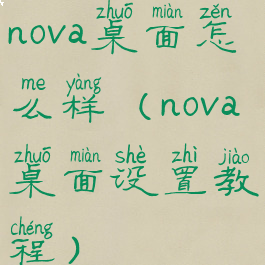 zhuō miàn zěn
nova桌面怎
me yàng
么样（nova
zhuō miàn shè zhì jiào
桌面设置教
chéng
程）